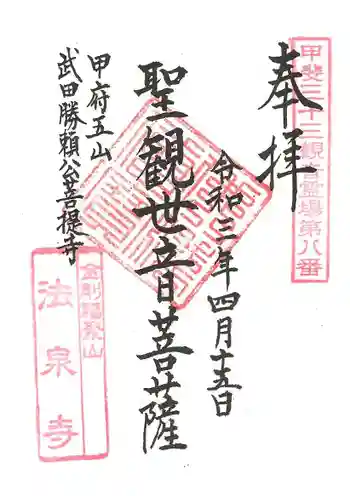 甲斐三十三観音霊場第八番
奉拝
令和三年四月十五日
聖観世音菩薩
甲府五山
武田勝頼公菩提寺
金剛福聚山
法泉寺